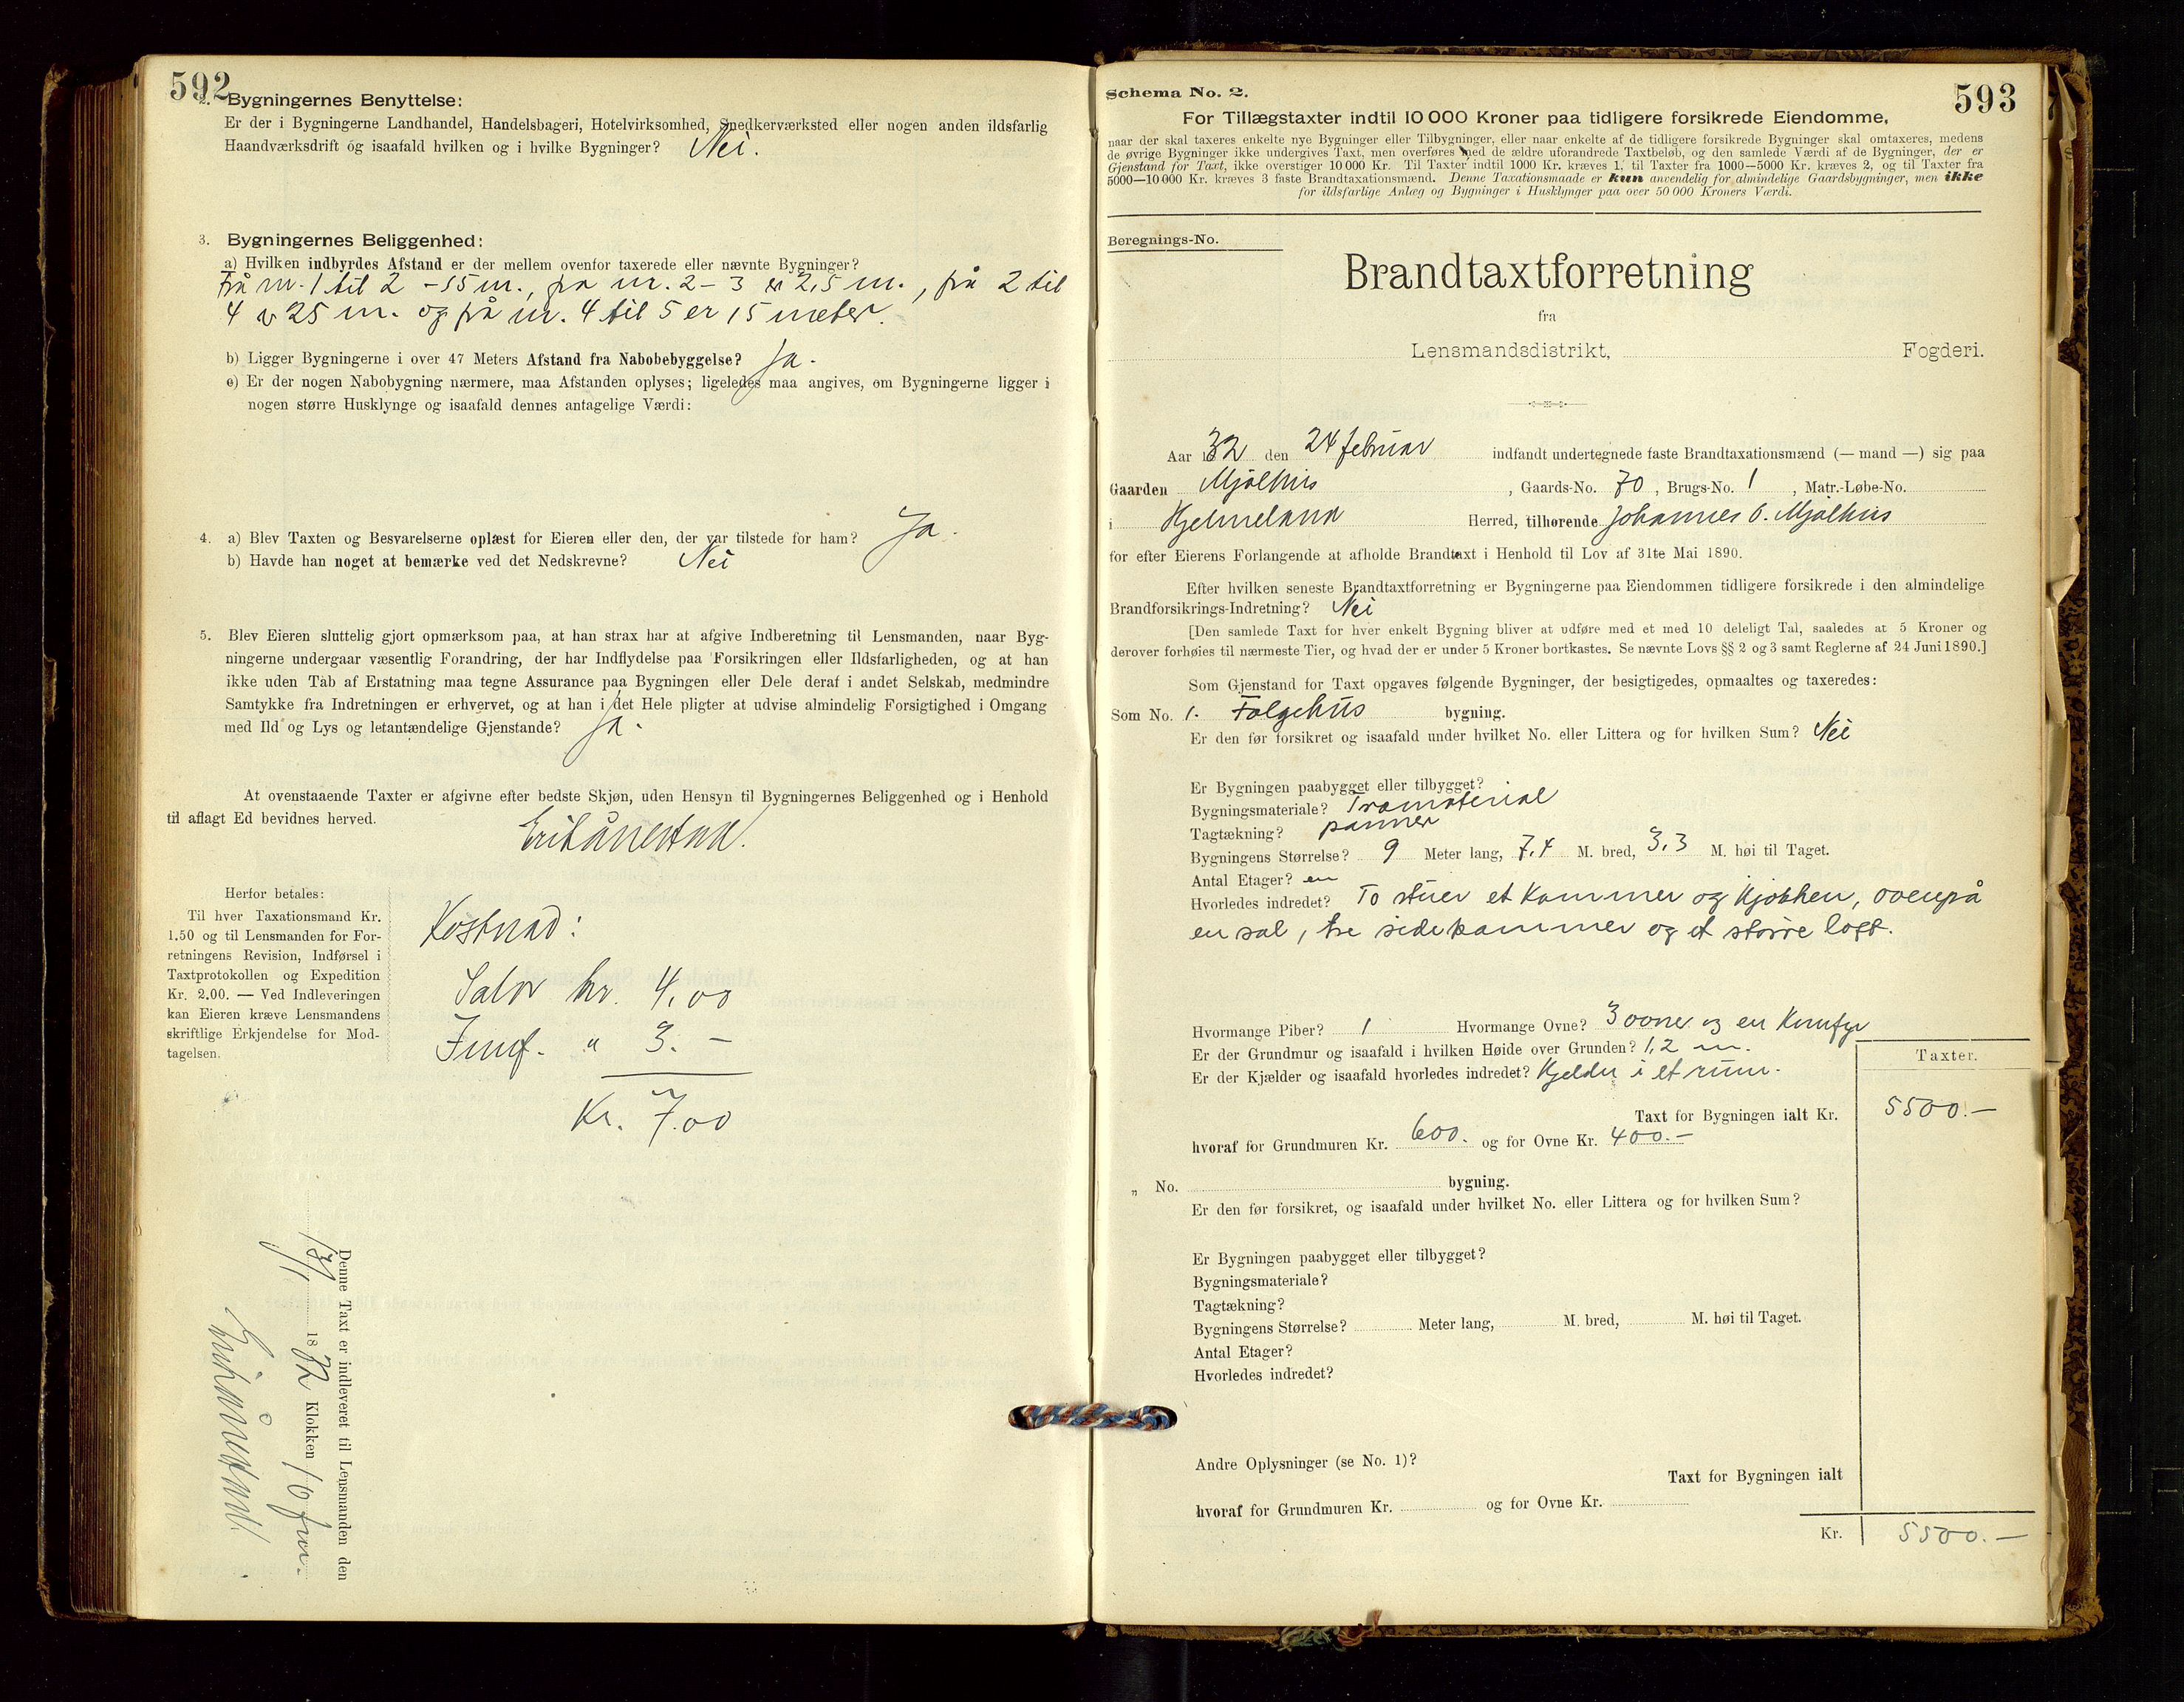 592
2. Bygningernes Benyttelse:
Er der i Bygningerne Landhandel, Handelsbageri, Hotelvirksomhed, Snedkerværksted eller nogen anden ildsfarlig
Haandværksdrift og isaafald hvilken og i hvilke Bygninger? Nei.
3. Bygningernes Beliggenhed:
a) Hvilken indbyrdes Afstand er der mellem ovenfor taxerede eller nævnte Bygninger?
Frå nr. 1 til 2 - 55 m., frå nr. 2 - 3 er 2,5 m., frå 2 til
4 er 25 m. og frå nr. 4 til 5 er 15 meter.
b) Ligger Bygningerne i over 47 Meters Afstand fra Nabobebyggelse? Ja.
c) Er der nogen Nabobygning nærmere, maa Afstanden oplyses; ligeledes maa angives, om Bygningerne ligger i
nogen større Husklynge og isaafald dennes antagelige Værdi:
4. a) Blev Taxten og Besvarelserne oplæst for Eieren eller den, der var tilstede for ham? Ja.
b) Havde han noget at bemærke ved det Nedskrevne? Nei
5. Blev Eieren sluttelig gjort opmærksom paa, at han strax har at afgive Indberetning til Lensmanden, naar Byg-
ningerne undergaar væsentlig Forandring, der har Indflydelse paa Forsikringen eller Ildsfarligheden, og at han
ikke uden Tab af Erstatning maa tegne Assurance paa Bygningen eller Dele deraf i andet Selskab, medmindre
Samtykke fra Indretningen er erhvervet, og at han i det Hele pligter at udvise almindelig Forsigtighed i Omgang
med Ild og Lys og letantændelige Gjenstande? Ja.
At ovenstaaende Taxter er afgivne efter bedste Skjøn, uden Hensyn til Bygningernes Beliggenhed og i Henhold
til aflagt Ed bevidnes herved.
Erik Ånestad.
Herfor betales:
Til hver Taxationsmand Kr.
1.50 og til Lensmanden for For-
retningens Revision, Indførsel i
Taxtprotokollen og Expedition
Kr. 2.00. — Ved Indleveringen
kan Eieren kræve Lensmandens
skriftlige Erkjendelse for Mod-
tagelsen.
Kostnad:
Salær kr. 4,00
" 3. -
Kr. 7.00
Denne Taxt er indleveret til Lensmanden den
18 32 Klokken 10 fm.
Erik Ånestad.
Schema No. 2.
593
For Tillægstaxter indtil 10 000 Kroner paa tidligere forsikrede Eiendomme,
naar der skal taxeres enkelte nye Bygninger eller Tilbygninger, eller naar enkelte af de tidligere forsikrede Bygninger skal omtaxeres, medens
de øvrige Bygninger ikke undergives Taxt, men overføres med de ældre uforandrede Taxtbeløb, og den samlede Værdi af de Bygninger, der er
Gjenstand for Taxt, ikke overstiger 10 000 Kr. Til Taxter indtil 1000 Kr. kræves 1, til Taxter fra 1000—5000 Kr. kræves 2, og til Taxter fra
5000—10 000 Kr. kræves 3 faste Brandtaxationsmænd. Denne Taxationsmaade er kun anvendelig for almindelige Gaardsbygninger, men ikke
for ildsfarlige Anlæg og Bygninger i Husklynger paa over 50 000 Kroners Værdi.
Beregnings-No.
Brandtaxtforretning
fra
Lensmandsdistrikt, Fogderi.
Aar 1832 den 24 februar indfandt undertegnede faste Brandtaxationsmænd (— mand —) sig paa
Gaarden Mjølhus, Gaards-No. 70, Brugs-No. 1, Matr.-Løbe-No.
i Hjelmeland Herred, tilhørende Johannes O. Mjølhus
for efter Eierens Forlangende at afholde Brandtaxt i Henhold til Lov af 31te Mai 1890.
Efter hvilken seneste Brandtaxtforretning er Bygningerne paa Eiendommen tidligere forsikrede i den almindelige
Brandforsikrings-Indretning? Nei
[Den samlede Taxt for hver enkelt Bygning bliver at udføre med et med 10 deleligt Tal, saaledes at 5 Kroner og
derover forhøies til nærmeste Tier, og hvad der er under 5 Kroner bortkastes. Se nævnte Lovs §§ 2 og 3 samt Reglerne af 24 Juni 1890.]
Som Gjenstand for Taxt opgaves følgende Bygninger, der besigtigedes, opmaaltes og taxeredes:
Som No. 1. Folgehus bygning.
Er den før forsikret og isaafald under hvilket No. eller Littera og for hvilken Sum? Nei
Er Bygningen paabygget eller tilbygget?
Bygningsmateriale? Tramaterial
Tagtækning? panner
Bygningens Størrelse? 9 Meter lang, 7,4 M. bred, 3,3 M. høi til Taget.
Antal Etager? en
Hvorledes indredet? To stuer et kammer og kjøkken, ovenpå
en sal, tre sidekammer og et større loft.
Hvormange Piber? 1 Hvormange Ovne? 3 ovner og en komfyr
Er der Grundmur og isaafald i hvilken Høide over Grunden? 1,2 m.
Er der Kjælder og isaafald hvorledes indredet? Kjelder i et rum.
Taxter.
Taxt for Bygningen ialt Kr. 5500.—
hvoraf for Grundmuren Kr. 600. og for Ovne Kr. 400.—
„ No. bygning.
Er den før forsikret, og isaafald under hvilket No. eller Littera og for hvilken Sum?
Er Bygningen paabygget eller tilbygget?
Bygningsmateriale?
Tagtækning?
Bygningens Størrelse? Meter lang, M. bred, M. høi til Taget.
Antal Etager?
Hvorledes indredet?
Andre Oplysninger (se No. 1)?
Taxt for Bygningen ialt
hvoraf for Grundmuren Kr. og for Ovne Kr.
Kr. 5500.—